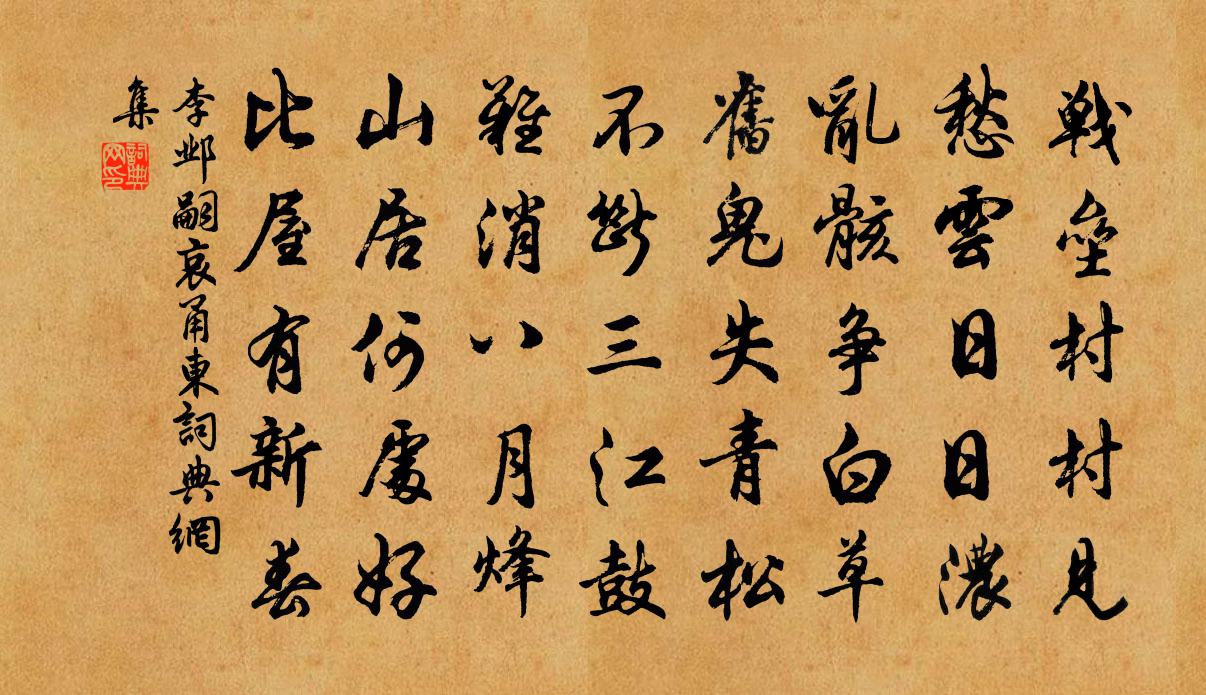 戰壘村村見
愁雲日日濃
亂骸爭白草
舊鬼失青松
不斷三江鼓
難消八月烽
山居何處好
比屋有新舂
李鄴嗣哀甬東詞典網
集
詞典
網印